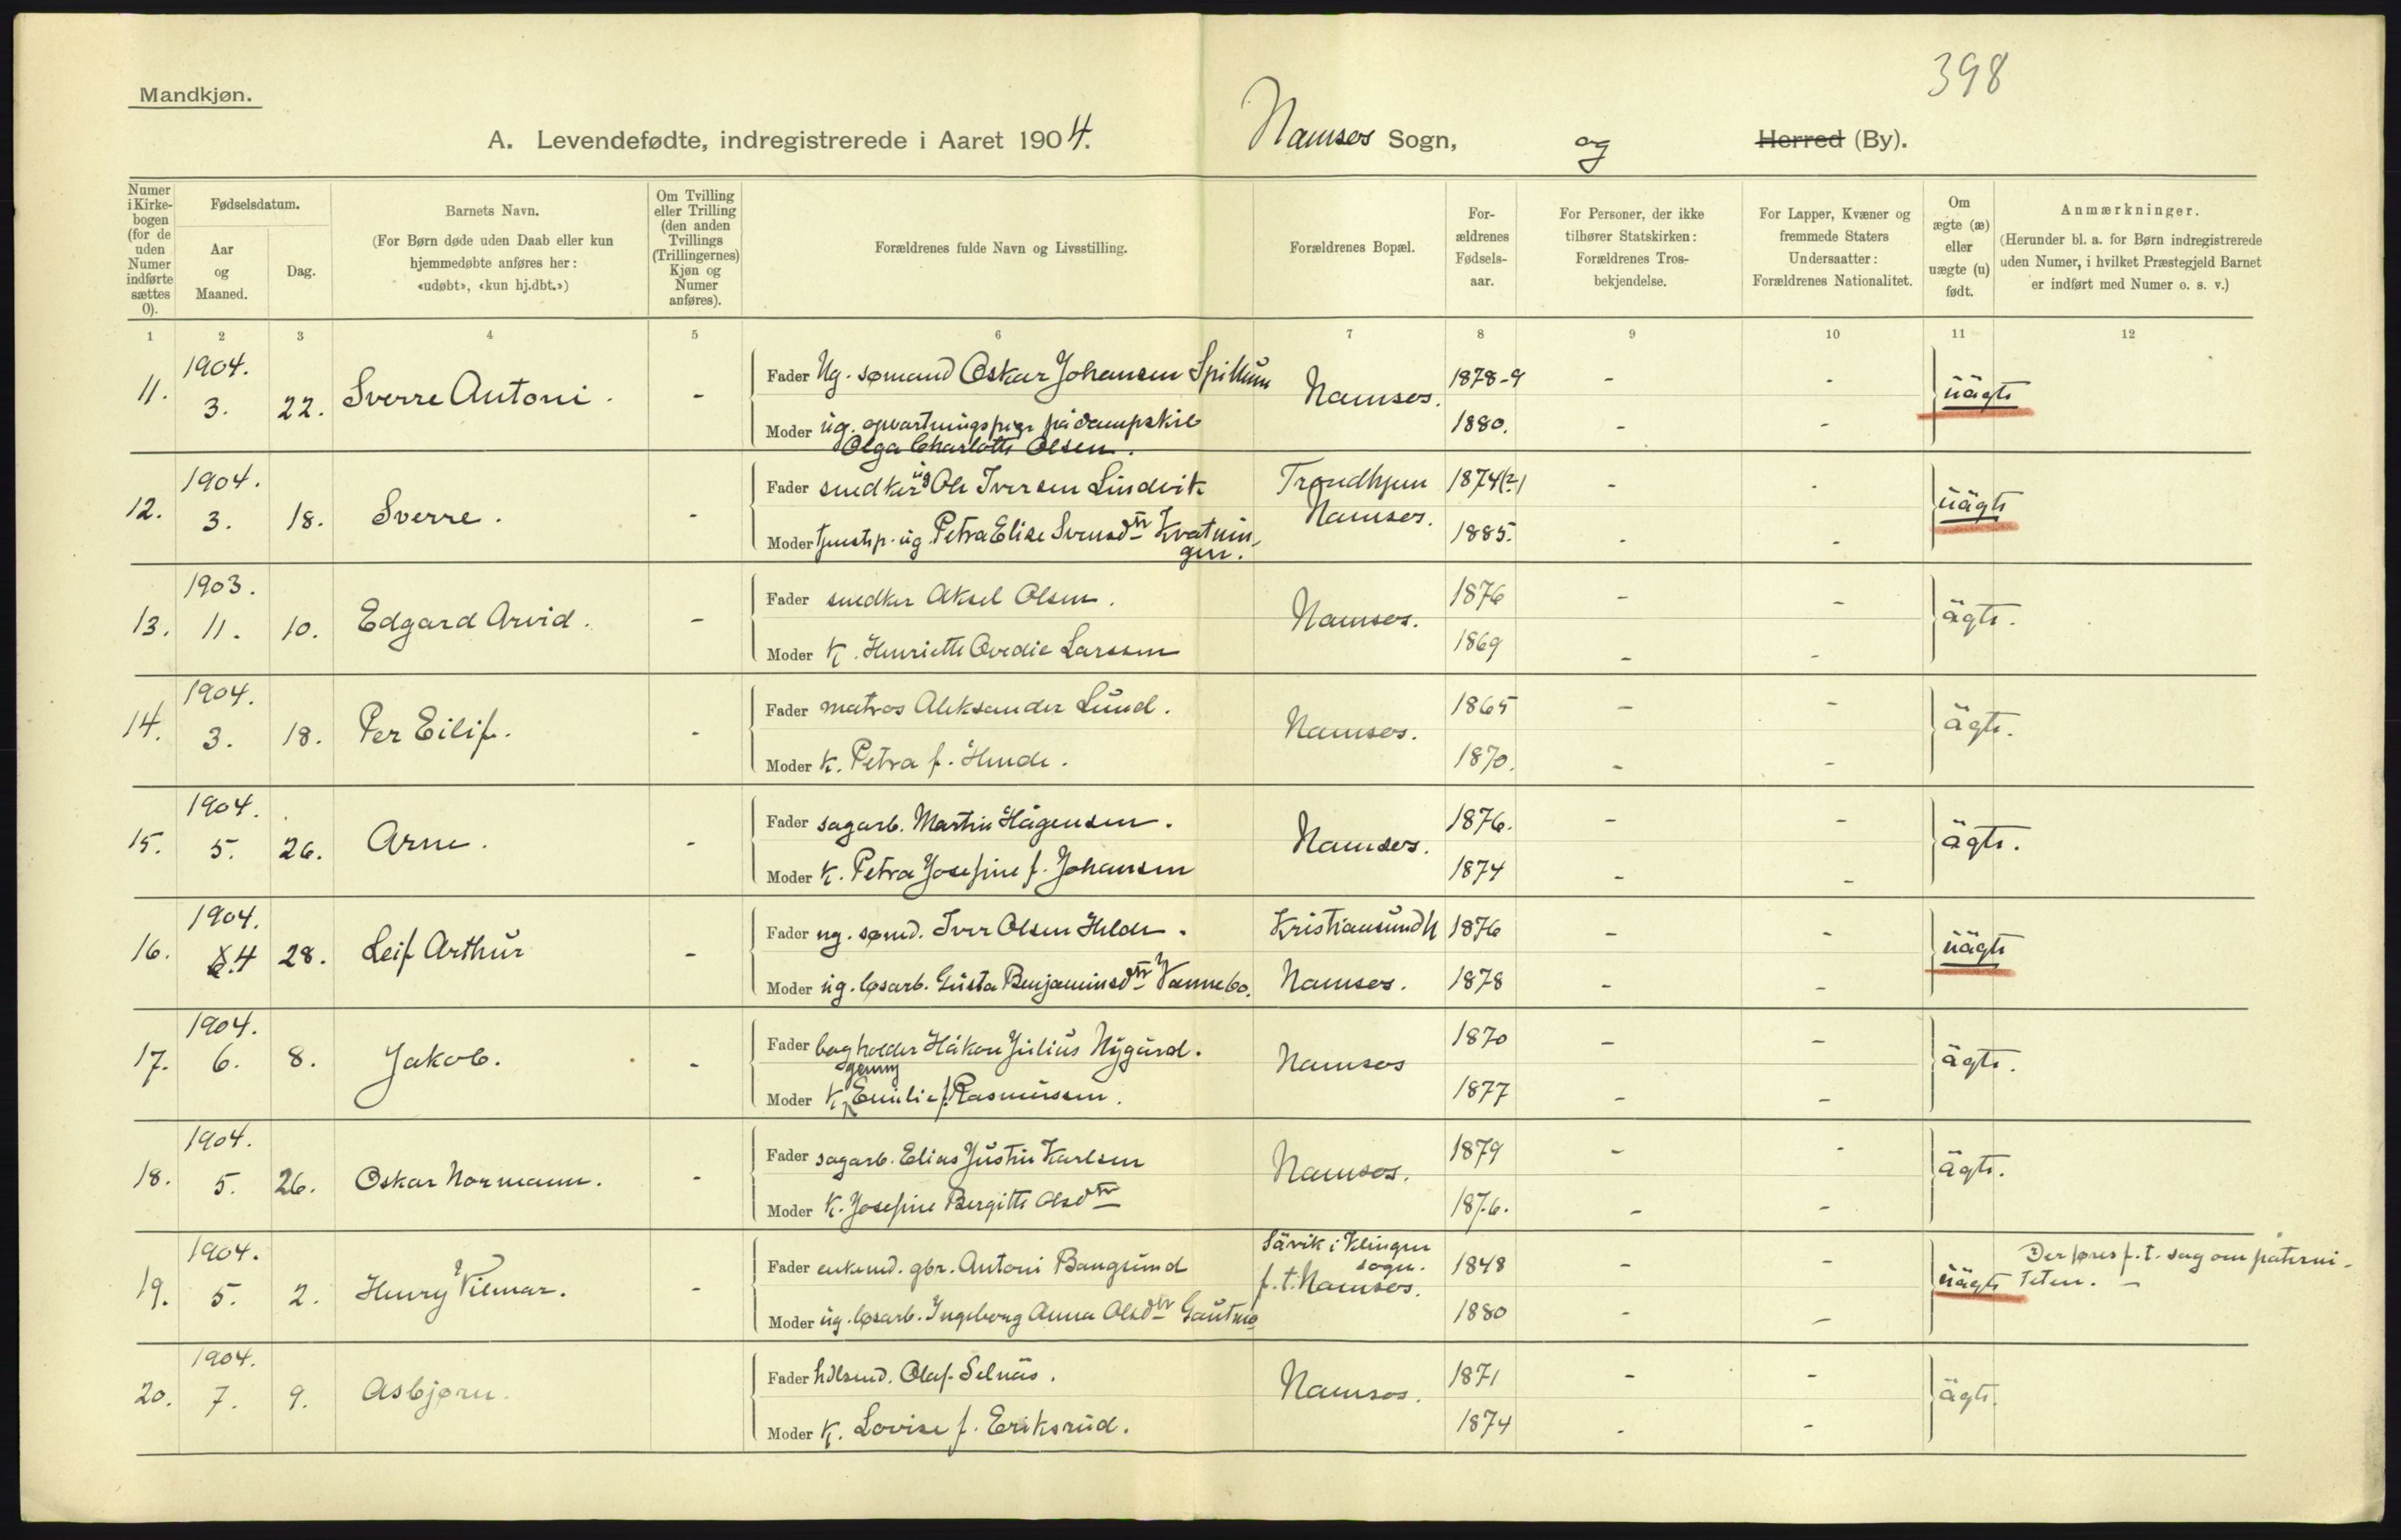 398
Mandkjøn.
A. Levendefødte, indregistrerede i Aaret 1904. Namsos Sogn, og Herred (By).
Numer i Kirke-bogen (for de uden Numer indførte sættes 0).
Fødselsdatum.
Aar og Maaned.
Dag.
Barnets Navn.
(For Børn døde uden Daab eller kun
hjemmedøbte anføres her:
«udøbt», «kun hj.dbt.»)
Om Tvilling
eller Trilling
(den anden
Tvillings
(Trillingernes)
Kjøn og
Numer
anføres).
Forældrenes fulde Navn og Livsstilling.
Forældrenes Bopæl.
For-
ældrenes
Fødsels-
aar.
For Personer, der ikke
tilhører Statskirken:
Forældrenes Tros-
bekjendelse.
For Lapper, Kvæner og
fremmede Staters
Undersaatter:
Forældrenes Nationalitet.
Om
ægte (æ)
eller
uægte (u)
født.
Anmærkninger.
(Herunder bl. a. for Børn indregistrerede
uden Numer, i hvilket Præstegjeld Barnet
er indført med Numer o. s. v.)
1 2 3 4 5 6 7 8 9 10 11 12
11. 1904. 3. 22. Sverre Antoni. - Fader Ug. sømand Oskar Johansen Spillum Namsos. 1878-9 - - uägte
Moder ug. opvartningspige på dampskib 1880. - -
Olga Charlotte Olsen.
12. 1904. 3. 18. Sverre. - Fader snedker ug Ole Iversen Lindvik Trondhjem 1874(?) - - uägte
Moder tjenestp. ug. Petra Elise Svensdtr Kvatnin- Namsos. 1885. - -
gen.
13. 1903. 11. 10. Edgard Arvid. - Fader snedker Aksel Olsen. Namsos. 1876 - - ägte.
Moder K. Henriette Ovedie Larssen 1869 - -
14. 1904. 3. 18. Per Eilif. - Fader matros Aleksander Lund. Namsos. 1865 - - ägte.
Moder K. Petra f. Hunde. 1870. - -
15. 1904. 5. 26. Arne. - Fader sagarb. Martin Hågensen. Namsos. 1876. - - ägte.
Moder K. Petra Josefine f. Johansen 1874 - -
16. 1904. 4 28. Leif Arthur - Fader ug. sømd. Iver Olsen Helde. Kristiansund N 1876 - - uägte
Moder ug. løsarb. Gusta Benjaminsdtr Vannebo. Namsos. 1878 - -
17. 1904. 6. 8. Jakob. - Fader bogholder Håkon Julius Nygård. Namsos 1870 - - ägte.
Moder K. Jenny Emilie f. Rasmussen. 1877 - -
18. 1904. 5. 26. Oskar Normann. - Fader sagarb. Elias Justin Karlsen Namsos. 1879 - - ägte.
Moder K. Josefine Bergitte Olsdtr 1876. - -
19. 1904. 5. 2. Henry Vilmar. - Fader enkemd. gbr. Antoni Bangsund Sävik i Klingen sogn. 1848 - - uägte Der føres f. t. sag om paterni-
teten. -
Moder ug. løsarb. Ingeborg Anna Olsdtr Gautmo f. t. Namsos. 1880 - -
20. 1904. 7. 9. Asbjørn. Fader hdlsmd. Olaf Selnäs. Namsos. 1871 - - ägte.
Moder K. Lovise f. Eriksrud. 1874 - -